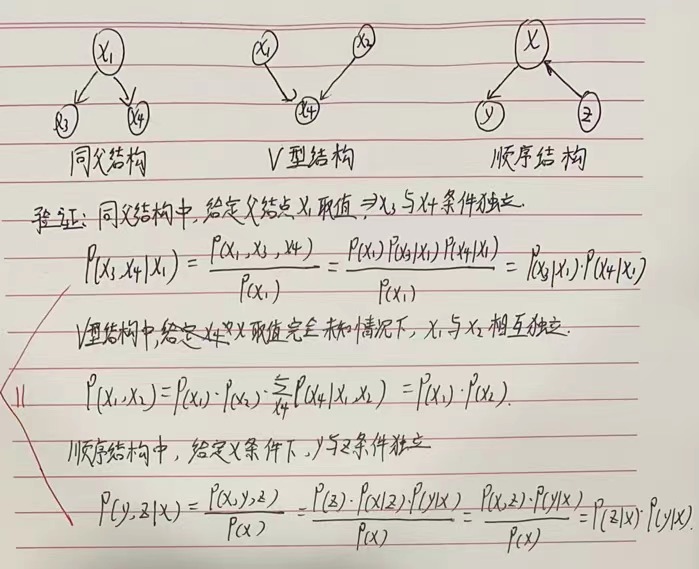 X₁ X₁ X₂ X
X₃ X₄ X₄ y z
同父结构 V型结构 顺序结构
验证: 同父结构中, 给定父结点 X₁ 取值 ⇒ X₃ 与 X₄ 条件独立.
P(X₃, X₄|X₁) = P(X₁, X₃, X₄) / P(X₁) = P(X₁) P(X₃|X₁) P(X₄|X₁) / P(X₁) = P(X₃|X₁)·P(X₄|X₁)
V型结构中, X₄ 取值完全未知情况下, X₁ 与 X₂ 相互独立.
P(X₁, X₂) = P(X₁)·P(X₂)·∑X₄ P(X₄|X₁, X₂) = P(X₁)·P(X₂).
顺序结构中, 给定 X 条件下, y 与 z 条件独立
P(y, z|x) = P(x, y, z) / P(x) = P(z)·P(x|z)·P(y|x) / P(x) = P(x, z)·P(y|x) / P(x) = P(z|x)·P(y|x).